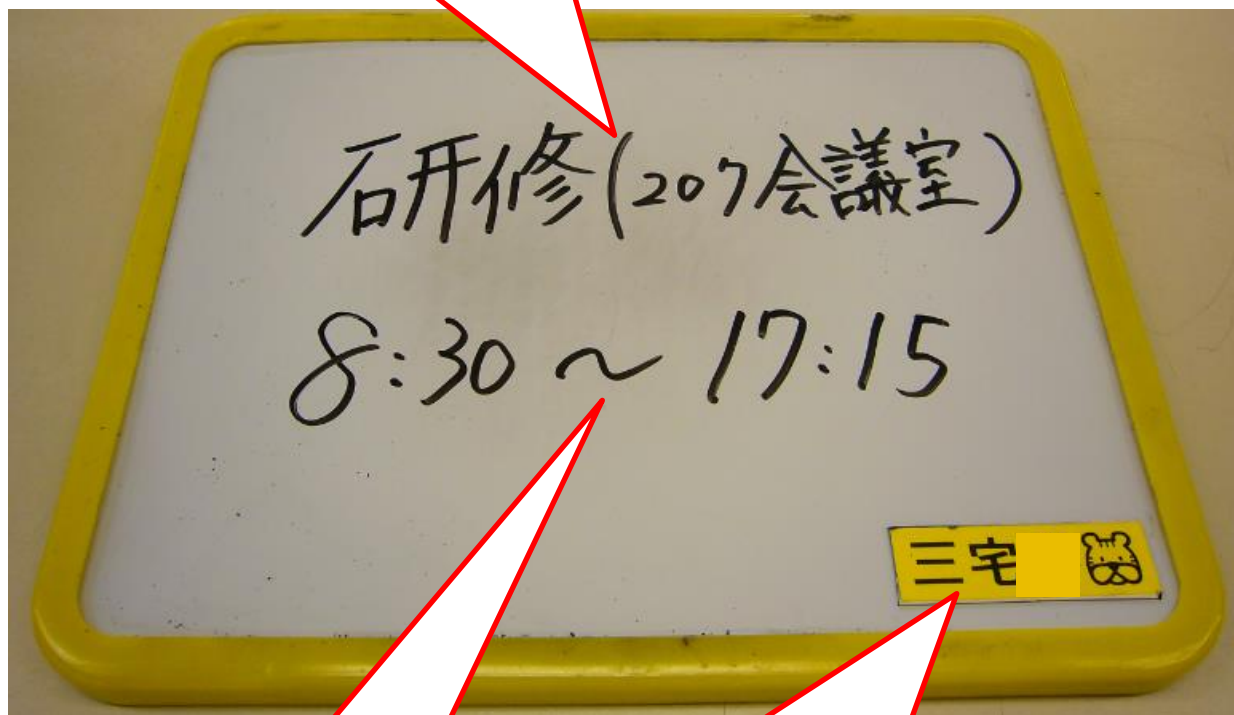 研修(207会議室)
8:30～17:15
三宅